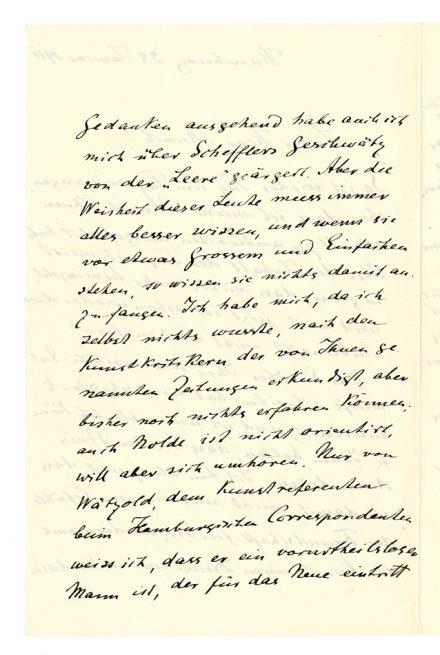 Gedanken ausgehend habe auch ich
mich über Schefflers Geschwätz
von der „Leere" geärgert. Aber die
Weisheit dieser Leute muss immer
alles besser wissen, und wenn sie
vor etwas Grossem und Einfachen
stehen, so wissen sie nichts damit an
zu fangen. Ich habe mich, da ich
selbst nichts wusste, nach den
Kunstkritikern der von Ihnen ge
nannten Zeitungen erkundigt, aber
bisher noch nichts erfahren können;
auch Nolde ist nicht orientirt,
will aber sich umhören. Nur von
Wätzold, dem Kunstreferenten
beim Hamburgischen Correspondenten
weiss ich, dass er ein vorurtheilsloser
Mann ist, der für das Neue eintritt